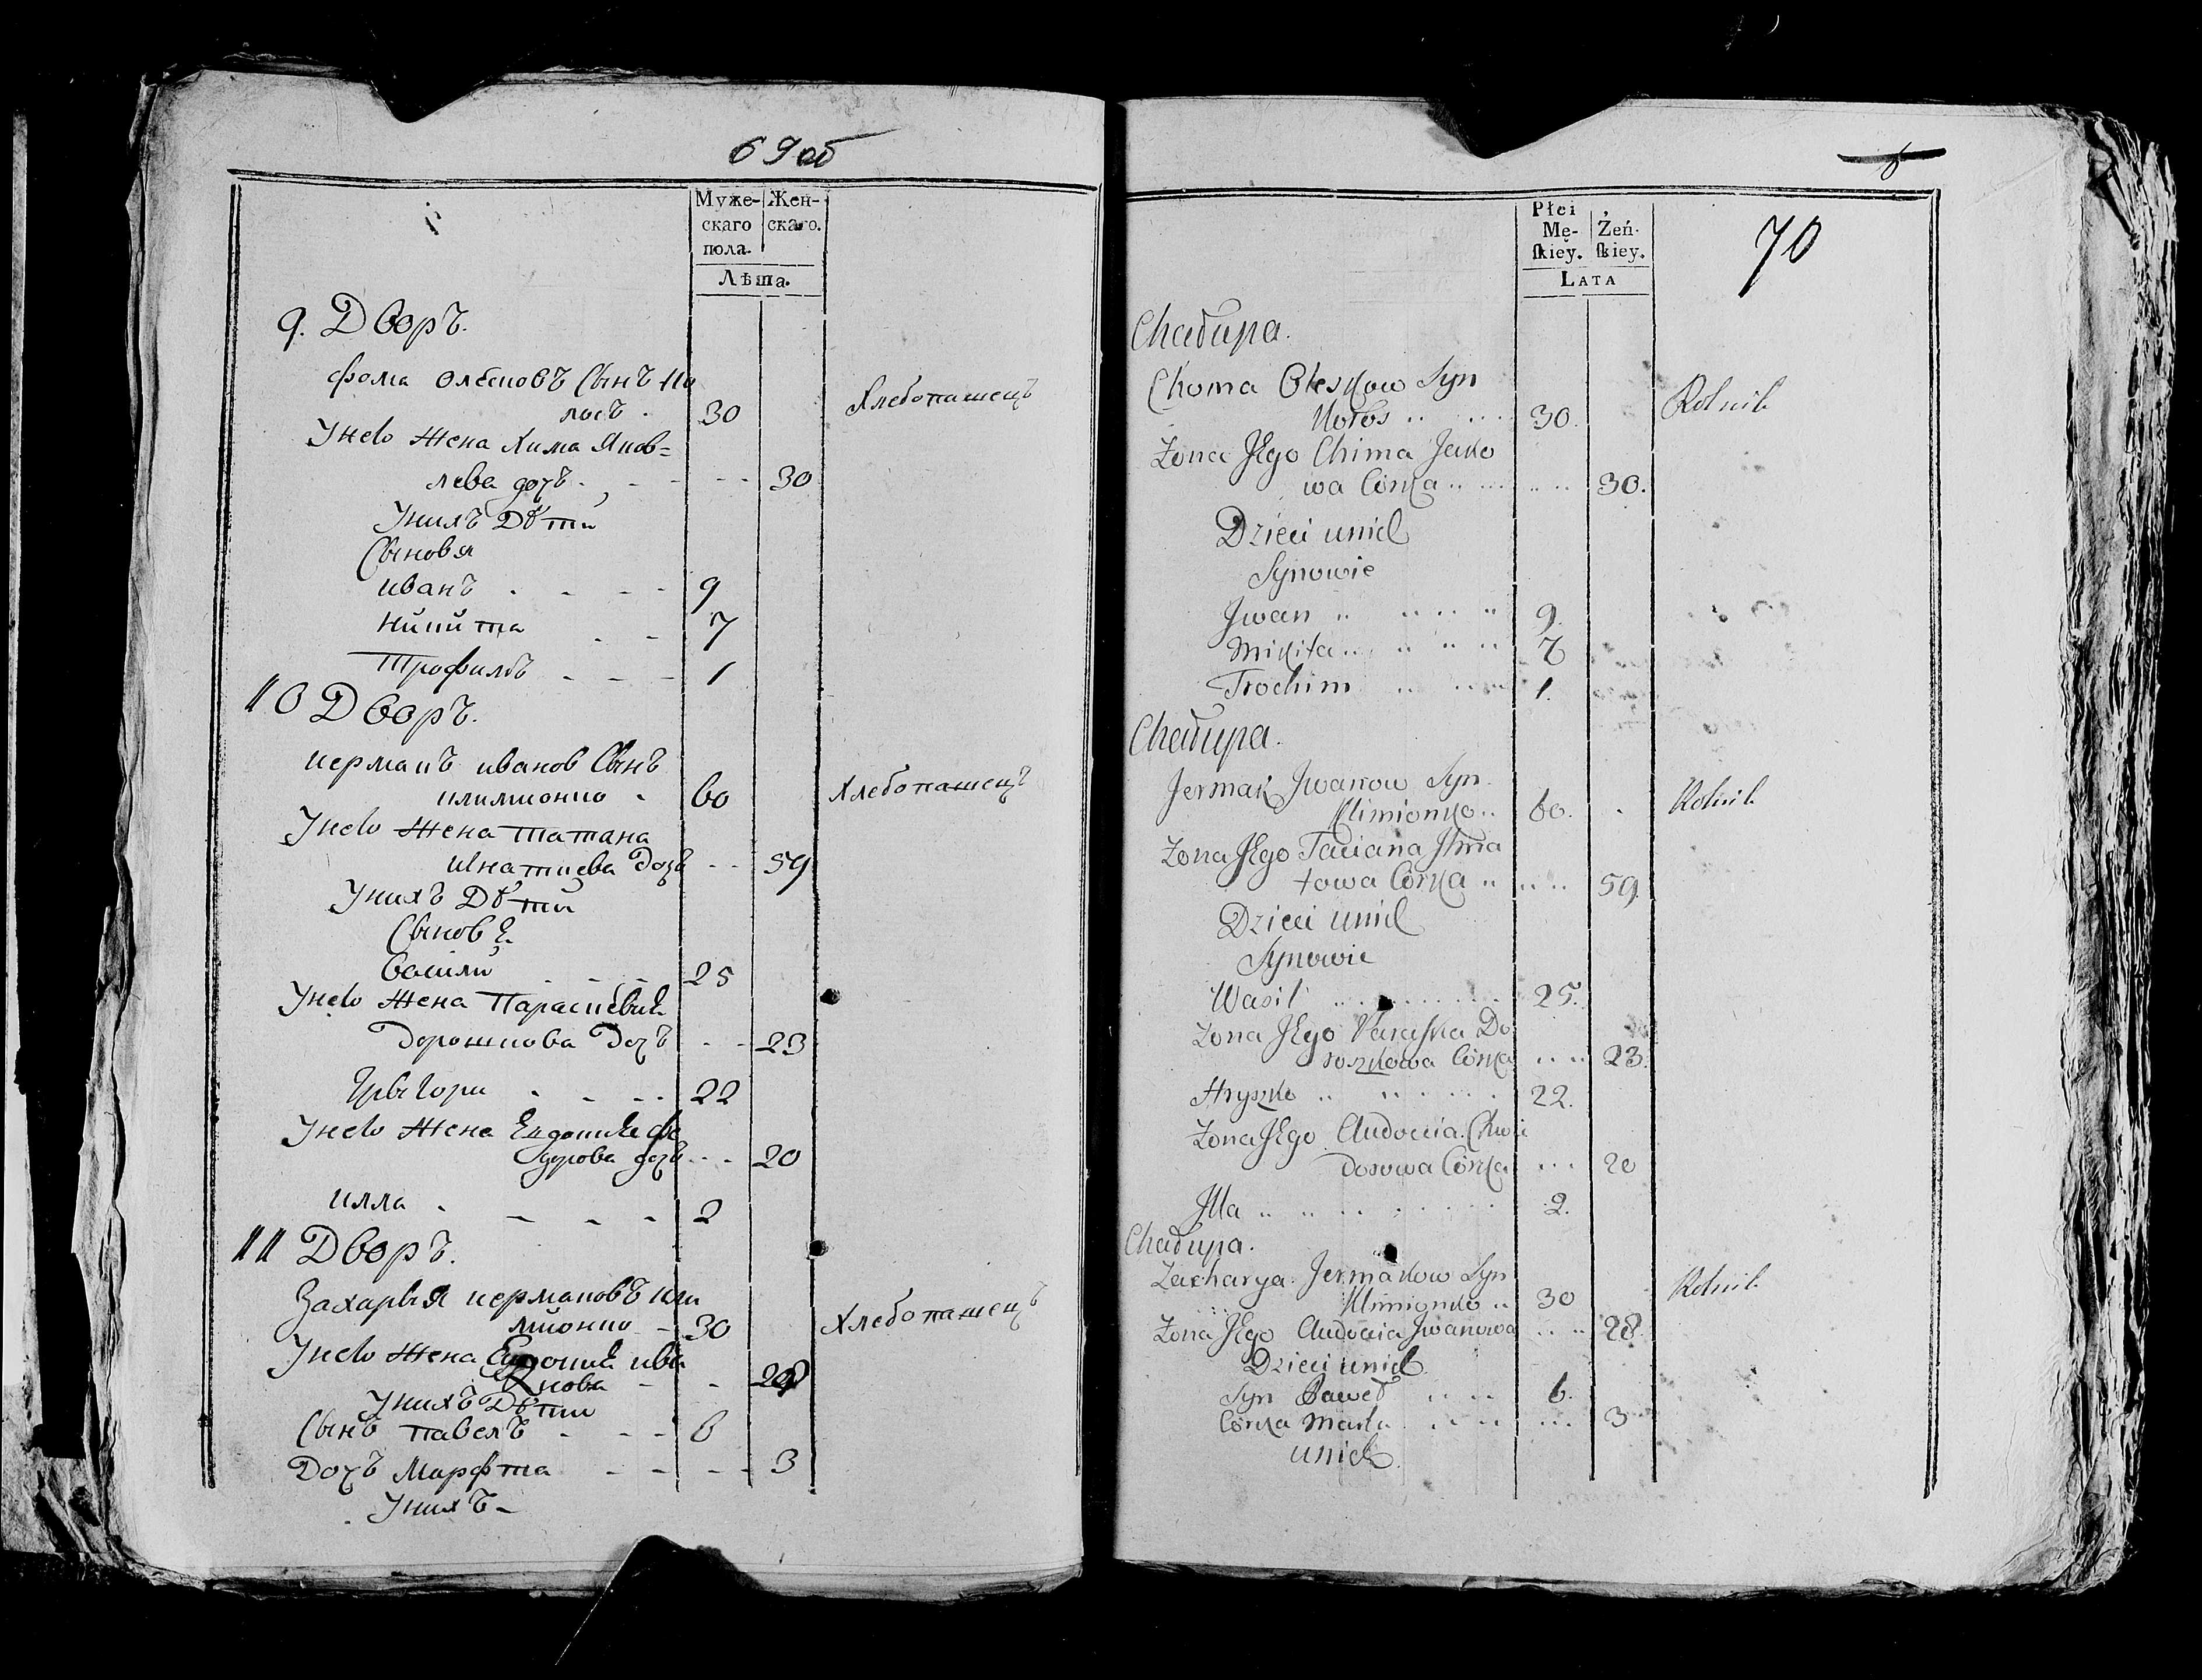 69 об
Муже-
скаго
пола.
Жен-
скаго.
Лѣта.
9. Дворъ.
Фома Олесковъ Сынъ Ко
лосъ . 30 Хлебопашецъ
Унево Жена Хима Яков=
лева дочъ . - - - - 30
Унихъ Дѣти
Сыновя
иванъ . - - - 9
Никита - - 7
Трофимъ - - - 1
10 Дворъ.
иермакъ иванов Сынъ
климионко . 60 Хлебопашецъ
Унево Жена татана
игнатиева Дочъ - - 59
Унихъ Дѣти
Сыновя
Василий - - - 25
Унево Жена Параскевия
Дорошкова Дочъ - - 23
Григори - - - 22
Унево Жена Евдокия фе
дорова дочъ - - 20
илла . - - - 2
11 Дворъ.
Захарыя иермаковъ кли
мионко - 30 Хлебопашецъ
Унево Жена Евдокия ива
нова - - 28
Унихъ Дѣти
Сынъ павелъ - - - 6
Дочъ Марфта - - - - 3
Унихъ -
Płci
Mę-
ſkiey.
Żeń-
ſkiey.
Lata
70
Chałupa.
Choma Oleskow Syn
Kołos .. .. 30. Rolnik
Zona Jego Chima Jako
wa Córka .. .. .. 30.
Dzieci unich
Synowie
Jwan .. .. .. .. 9.
Mikita .. .. .. .. 7
Trochim .. .. .. 1.
Chałupa.
Jermak Jwanow Syn
Klimionko .. 60. Rolnik
Zona Jego Taciana Jhna
towa Córka .. .. .. 59.
Dzieci unich
Synowie
Wasil .. .. .. 25.
Zona Jego Paraska Do
roszkowa Córka .. .. 23.
Hryszko .. .. .. 22.
Zona Jego Audocia Chwie
dorowa Córka ... 20
Jlla .. .. .. .. 2.
Chałupa.
Zacharya Jermakow Syn
Klimionko .. 30 Rolnik
Zona Jego Audocia Jwanowa .. .. 28.
Dzieci unich
Syn Paweł .. .. 6.
Córka Marta .. .. ... 3
unich.